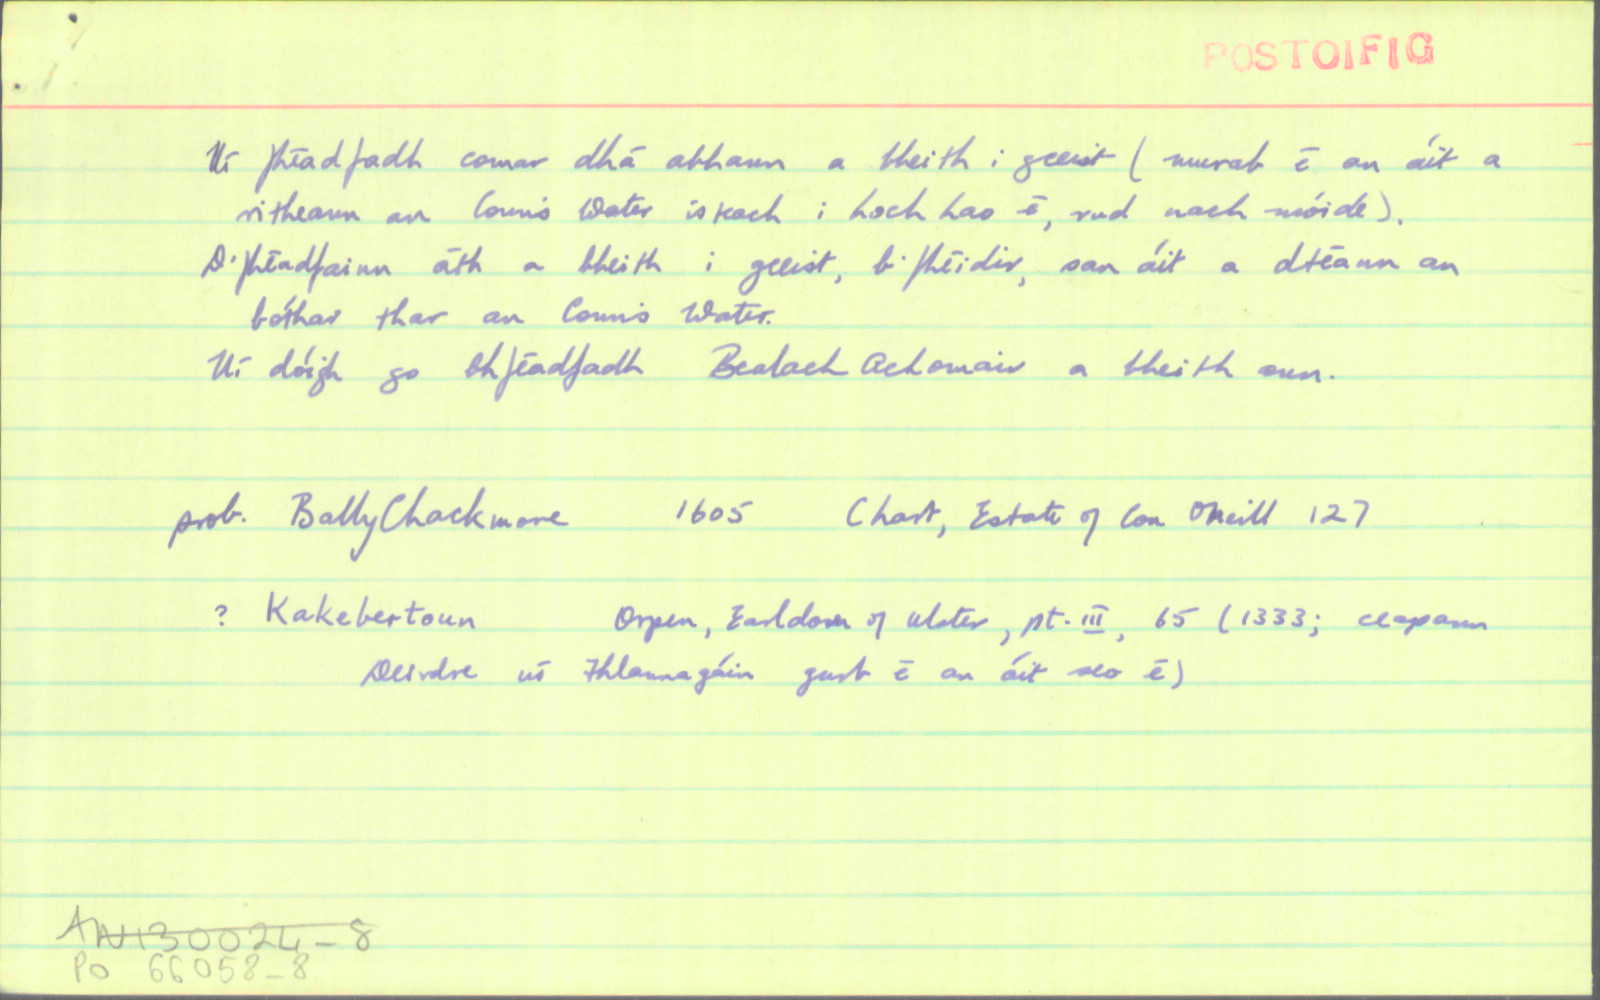 POSTOIFIG
Ní fhéadfadh comar dhá abhann a bheith i gceist (murab é an áit a
ritheann an Conn's Water isteach i Loch Lao é, rud nach móide).
D'fhéadfainn áth a bheith i gceist, b'fhéidir, san áit a dtéann an
bóthar thar an Conn's Water.
Ní dóigh go bhféadfadh Bealach Achomair a bheith ann.
prob. BallyChackmore 1605 Chart, Estate of Con O'Neill 127
? Kakebertoun Orpen, Earldom of Ulster, pt. III, 65 (1333; ceapann
Deirdre Uí Fhlannagáin gurb é an áit seo é)
AN130024-8
PO 66058-8